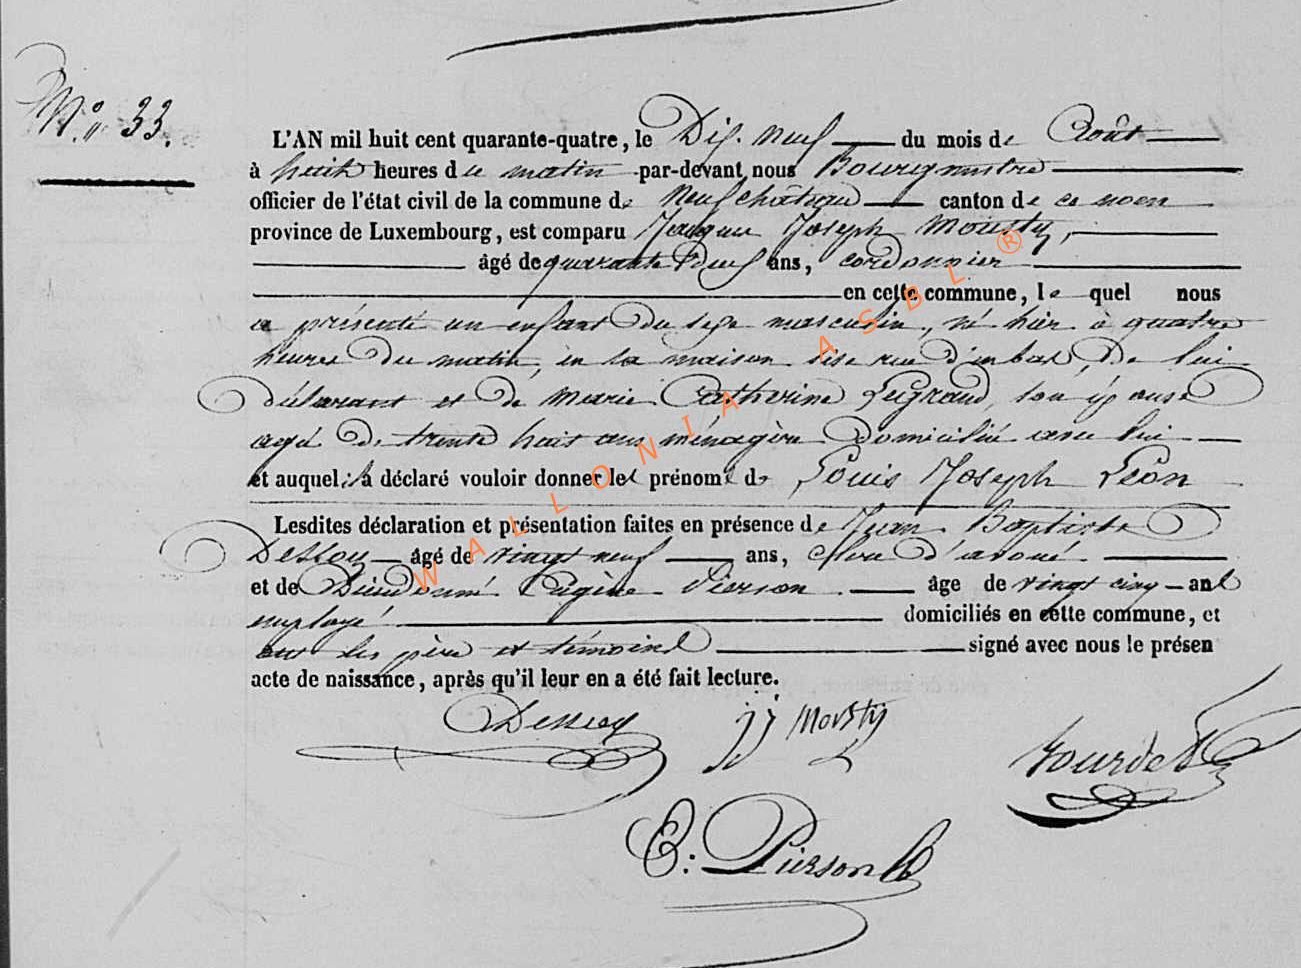 N.° 33.
L'AN mil huit cent quarante-quatre, le Dix-neuf du mois de Août
à huit heures du matin par-devant nous Bourgmestre
officier de l'état civil de la commune de Neufchâteau canton de ce nom
province de Luxembourg, est comparu Jacques Joseph Mousty,
âgé de quarante neuf ans, cordonnier
en cette commune, le quel nous
a présenté un enfant du sexe masculin, né hier à quatre
heures du matin, en la maison sise rue d'en bas, de lui
déclarant et de Marie Catherine Legrand, son épouse
agée de trente huit ans ménagère domiciliée avec lui
et auquel il a déclaré vouloir donner les prénoms de Louis Joseph Léon
Lesdites déclaration et présentation faites en présence de Jean Baptiste
Dessoy âgé de vingt neuf ans, clerc d'avoué
et de Dieudonné Eugène Pierson âge de vingt cinq ans
employé domiciliés en cette commune, et
ont les père et témoins signé avec nous le présen
acte de naissance, après qu'il leur en a été fait lecture.
Dessoy JJ Mousty
E: Pierson
WALLONIA ASBL ®